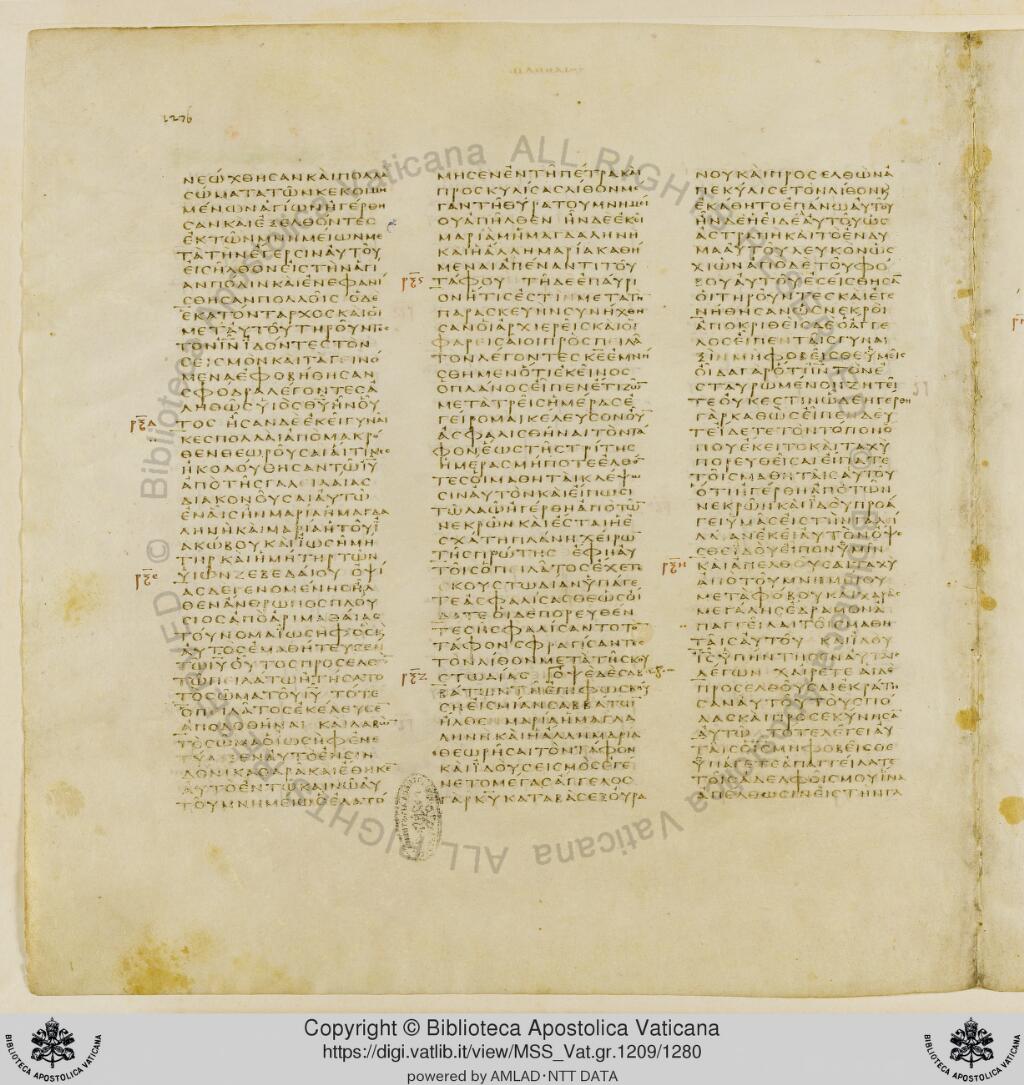 1276
ΝΕΩΧΘΗΣΑΝ ΚΑΙ ΠΟΛΛΑ
ΣΩΜΑΤΑ ΤΩΝ ΚΕΚΟΙΜΗ
ΜΕΝΩΝ ΑΓΙΩΝ ΗΓΕΡΘΗ
ΣΑΝ ΚΑΙ ΕΞΕΛΘΟΝΤΕΣ
ΕΚ ΤΩΝ ΜΝΗΜΕΙΩΝ ΜΕ
ΤΑ ΤΗΝ ΕΓΕΡΣΙΝ ΑΥΤΟΥ
ΕΙΣΗΛΘΟΝ ΕΙΣ ΤΗΝ ΑΓΙ
ΑΝ ΠΟΛΙΝ ΚΑΙ ΕΝΕΦΑΝΙ
ΣΘΗΣΑΝ ΠΟΛΛΟΙΣ Ο ΔΕ
ΕΚΑΤΟΝΤΑΡΧΟΣ ΚΑΙ ΟΙ
ΜΕΤ ΑΥΤΟΥ ΤΗΡΟΥΝΤΕΣ
ΤΟΝ ΙΝ ΙΔΟΝΤΕΣ ΤΟΝ
ΣΕΙΣΜΟΝ ΚΑΙ ΤΑ ΓΕΙΝΟ
ΜΕΝΑ ΕΦΟΒΗΘΗΣΑΝ
ΣΦΟΔΡΑ ΛΕΓΟΝΤΕΣ Α
ΛΗΘΩΣ ΥΙΟΣ ΘΥ ΗΝ ΟΥ
ΤΟΣ ΗΣΑΝ ΔΕ ΕΚΕΙ ΓΥΝΑΙ
ΚΕΣ ΠΟΛΛΑΙ ΑΠΟ ΜΑΚΡΟ
ΘΕΝ ΘΕΩΡΟΥΣΑΙ ΑΙΤΙΝΕΣ
ΗΚΟΛΟΥΘΗΣΑΝ ΤΩ ΙΥ
ΑΠΟ ΤΗΣ ΓΑΛΕΙΛΑΙΑΣ
ΔΙΑΚΟΝΟΥΣΑΙ ΑΥΤΩ
ΕΝ ΑΙΣ ΗΝ ΜΑΡΙΑ Η ΜΑΓΔΑ
ΛΗΝΗ ΚΑΙ ΜΑΡΙΑ Η ΤΟΥ Ι
ΑΚΩΒΟΥ ΚΑΙ ΙΩΣΗ ΜΗ
ΤΗΡ ΚΑΙ Η ΜΗΤΗΡ ΤΩΝ
ΥΙΩΝ ΖΕΒΕΔΑΙΟΥ ΟΨΙ
ΑΣ ΔΕ ΓΕΝΟΜΕΝΗΣ ΗΛ
ΘΕΝ ΑΝΘΡΩΠΟΣ ΠΛΟΥ
ΣΙΟΣ ΑΠΟ ΑΡΙΜΑΘΑΙΑΣ
ΤΟΥΝΟΜΑ ΙΩΣΗΦ ΟΣ Κ
ΑΥΤΟΣ ΕΜΑΘΗΤΕΥΣΕΝ
ΤΩ ΙΥ ΟΥΤΟΣ ΠΡΟΣΕΛΘΩ
ΤΩ ΠΕΙΛΑΤΩ ΗΤΗΣΑΤΟ
ΤΟ ΣΩΜΑ ΤΟΥ ΙΥ ΤΟΤΕ
Ο ΠΕΙΛΑΤΟΣ ΕΚΕΛΕΥΣΕ
ΑΠΟΔΟΘΗΝΑΙ ΚΑΙ ΛΑΒΩ
ΤΟ ΣΩΜΑ Ο ΙΩΣΗΦ ΕΝΕ
ΤΥΛΙΞΕΝ ΑΥΤΟ ΕΝ ΣΙΝ
ΔΟΝΙ ΚΑΘΑΡΑ ΚΑΙ ΕΘΗΚΕ
ΑΥΤΟ ΕΝ ΤΩ ΚΑΙΝΩ ΑΥ
ΤΟΥ ΜΝΗΜΕΙΩ Ο ΕΛΑΤΟ
ΜΗΣΕΝ ΕΝ ΤΗ ΠΕΤΡΑ ΚΑΙ
ΠΡΟΣΚΥΛΙΣΑΣ ΛΙΘΟΝ ΜΕ
ΓΑΝ ΤΗ ΘΥΡΑ ΤΟΥ ΜΝΗΜΕΙ
ΟΥ ΑΠΗΛΘΕΝ ΗΝ ΔΕ ΕΚΕΙ
ΜΑΡΙΑΜ Η ΜΑΓΔΑΛΗΝΗ
ΚΑΙ Η ΑΛΛΗ ΜΑΡΙΑ ΚΑΘΗ
ΜΕΝΑΙ ΑΠΕΝΑΝΤΙ ΤΟΥ
ΤΑΦΟΥ ΤΗ ΔΕ ΕΠΑΥΡΙ
ΟΝ ΗΤΙΣ ΕΣΤΙΝ ΜΕΤΑ ΤΗ
ΠΑΡΑΣΚΕΥΗΝ ΣΥΝΗΧΘΗ
ΣΑΝ ΟΙ ΑΡΧΙΕΡΕΙΣ ΚΑΙ ΟΙ
ΦΑΡΕΙΣΑΙΟΙ ΠΡΟΣ ΠΕΙΛΑ
ΤΟΝ ΛΕΓΟΝΤΕΣ ΚΕ ΕΜΝΗ
ΣΘΗΜΕΝ ΟΤΙ ΕΚΕΙΝΟΣ
Ο ΠΛΑΝΟΣ ΕΙΠΕΝ ΕΤΙ ΖΩ
ΜΕΤΑ ΤΡΕΙΣ ΗΜΕΡΑΣ Ε
ΓΕΙΡΟΜΑΙ ΚΕΛΕΥΣΟΝ ΟΥ
ΑΣΦΑΛΙΣΘΗΝΑΙ ΤΟΝ ΤΑ
ΦΟΝ ΕΩΣ ΤΗΣ ΤΡΙΤΗΣ
ΗΜΕΡΑΣ ΜΗΠΟΤΕ ΕΛΘΟ
ΤΕΣ ΟΙ ΜΑΘΗΤΑΙ ΚΛΕΨΩ
ΣΙΝ ΑΥΤΟΝ ΚΑΙ ΕΙΠΩΣΙ
ΤΩ ΛΑΩ ΗΓΕΡΘΗ ΑΠΟ ΤΩ
ΝΕΚΡΩΝ ΚΑΙ ΕΣΤΑΙ Η Ε
ΣΧΑΤΗ ΠΛΑΝΗ ΧΕΙΡΩ
ΤΗΣ ΠΡΩΤΗΣ ΕΦΗ ΑΥ
ΤΟΙΣ Ο ΠΕΙΛΑΤΟΣ ΕΧΕΤΕ
ΚΟΥΣΤΩΔΙΑΝ ΥΠΑΓΕ
ΤΕ ΑΣΦΑΛΙΣΑΣΘΕ ΩΣ ΟΙ
ΔΑΤΕ ΟΙ ΔΕ ΠΟΡΕΥΘΕΝ
ΤΕΣ ΗΣΦΑΛΙΣΑΝΤΟ ΤΟ
ΤΑΦΟΝ ΣΦΡΑΓΙΣΑΝΤΕΣ
ΤΟΝ ΛΙΘΟΝ ΜΕΤΑ ΤΗΣ ΚΟΥ
ΣΤΩΔΙΑΣ ΟΨΕ ΔΕ ΣΑΒ
ΒΑΤΩΝ ΤΗ ΕΠΙΦΩΣΚΟΥ
ΣΗ ΕΙΣ ΜΙΑΝ ΣΑΒΒΑΤΩ
ΗΛΘΕ ΜΑΡΙΑ Η ΜΑΓΔΑ
ΛΗΝΗ ΚΑΙ Η ΑΛΛΗ ΜΑΡΙΑ
ΘΕΩΡΗΣΑΙ ΤΟΝ ΤΑΦΟΝ
ΚΑΙ ΙΔΟΥ ΣΕΙΣΜΟΣ ΕΓΕ
ΝΕΤΟ ΜΕΓΑΣ ΑΓΓΕΛΟΣ
ΓΑΡ ΚΥ ΚΑΤΑΒΑΣ ΕΞ ΟΥΡΑ
ΝΟΥ ΚΑΙ ΠΡΟΣΕΛΘΩΝ Α
ΠΕΚΥΛΙΣΕ ΤΟΝ ΛΙΘΟΝ Κ
ΕΚΑΘΗΤΟ ΕΠΑΝΩ ΑΥΤΟΥ
ΗΝ ΔΕ Η ΕΙΔΕΑ ΑΥΤΟΥ ΩΣ
ΑΣΤΡΑΠΗ ΚΑΙ ΤΟ ΕΝΔΥ
ΜΑ ΑΥΤΟΥ ΛΕΥΚΟΝ ΩΣ
ΧΙΩΝ ΑΠΟ ΔΕ ΤΟΥ ΦΟ
ΒΟΥ ΑΥΤΟΥ ΕΣΕΙΣΘΗΣΑ
ΟΙ ΤΗΡΟΥΝΤΕΣ ΚΑΙ ΕΓΕ
ΝΗΘΗΣΑΝ ΩΣ ΝΕΚΡΟΙ
ΑΠΟΚΡΙΘΕΙΣ ΔΕ Ο ΑΓΓΕ
ΛΟΣ ΕΙΠΕΝ ΤΑΙΣ ΓΥΝΑΙ
ΞΙΝ ΜΗ ΦΟΒΕΙΣΘΕ ΥΜΕΙΣ
ΟΙΔΑ ΓΑΡ ΟΤΙ ΙΝ ΤΟΝ Ε
ΣΤΑΥΡΩΜΕΝΟΝ ΖΗΤΕΙ
ΤΕ ΟΥΚ ΕΣΤΙΝ ΩΔΕ ΗΓΕΡΘΗ
ΓΑΡ ΚΑΘΩΣ ΕΙΠΕΝ ΔΕΥ
ΤΕ ΙΔΕΤΕ ΤΟΝ ΤΟΠΟΝ Ο
ΠΟΥ ΕΚΕΙΤΟ ΚΑΙ ΤΑΧΥ
ΠΟΡΕΥΘΕΙΣΑΙ ΕΙΠΑΤΕ
ΤΟΙΣ ΜΑΘΗΤΑΙΣ ΑΥΤΟΥ
ΟΤΙ ΗΓΕΡΘΗ ΑΠΟ ΤΩΝ
ΝΕΚΡΩΝ ΚΑΙ ΙΔΟΥ ΠΡΟΑ
ΓΕΙ ΥΜΑΣ ΕΙΣ ΤΗΝ ΓΑΛΙ
ΛΑΙΑΝ ΕΚΕΙ ΑΥΤΟΝ ΟΨΕ
ΣΘΕ ΙΔΟΥ ΕΙΠΟΝ ΥΜΙΝ
ΚΑΙ ΑΠΕΛΘΟΥΣΑΙ ΤΑΧΥ
ΑΠΟ ΤΟΥ ΜΝΗΜΕΙΟΥ
ΜΕΤΑ ΦΟΒΟΥ ΚΑΙ ΧΑΡΑΣ
ΜΕΓΑΛΗΣ ΕΔΡΑΜΟΝ Α
ΠΑΓΓΕΙΛΑΙ ΤΟΙΣ ΜΑΘΗ
ΤΑΙΣ ΑΥΤΟΥ ΚΑΙ ΙΔΟΥ
ΙΣ ΥΠΗΝΤΗΣΕΝ ΑΥΤΑΙΣ
ΛΕΓΩΝ ΧΑΙΡΕΤΕ ΑΙ ΔΕ
ΠΡΟΣΕΛΘΟΥΣΑΙ ΕΚΡΑΤΗ
ΣΑΝ ΑΥΤΟΥ ΤΟΥΣ ΠΟ
ΔΑΣ ΚΑΙ ΠΡΟΣΕΚΥΝΗΣΑ
ΑΥΤΩ ΤΟΤΕ ΛΕΓΕΙ ΑΥ
ΤΑΙΣ Ο ΙΣ ΜΗ ΦΟΒΕΙΣΘΕ
ΥΠΑΓΕΤΕ ΑΠΑΓΓΕΙΛΑΤΕ
ΤΟΙΣ ΑΔΕΛΦΟΙΣ ΜΟΥ ΙΝΑ
ΑΠΕΛΘΩΣΙΝ ΕΙΣ ΤΗΝ ΓΑ
Copyright © Biblioteca Apostolica Vaticana
https://digi.vatlib.it/view/MSS_Vat.gr.1209/1280
powered by AMLAD·NTT DATA
BIBLIOTECA APOSTOLICA VATICANA
BIBLIOTECA APOSTOLICA VATICANA